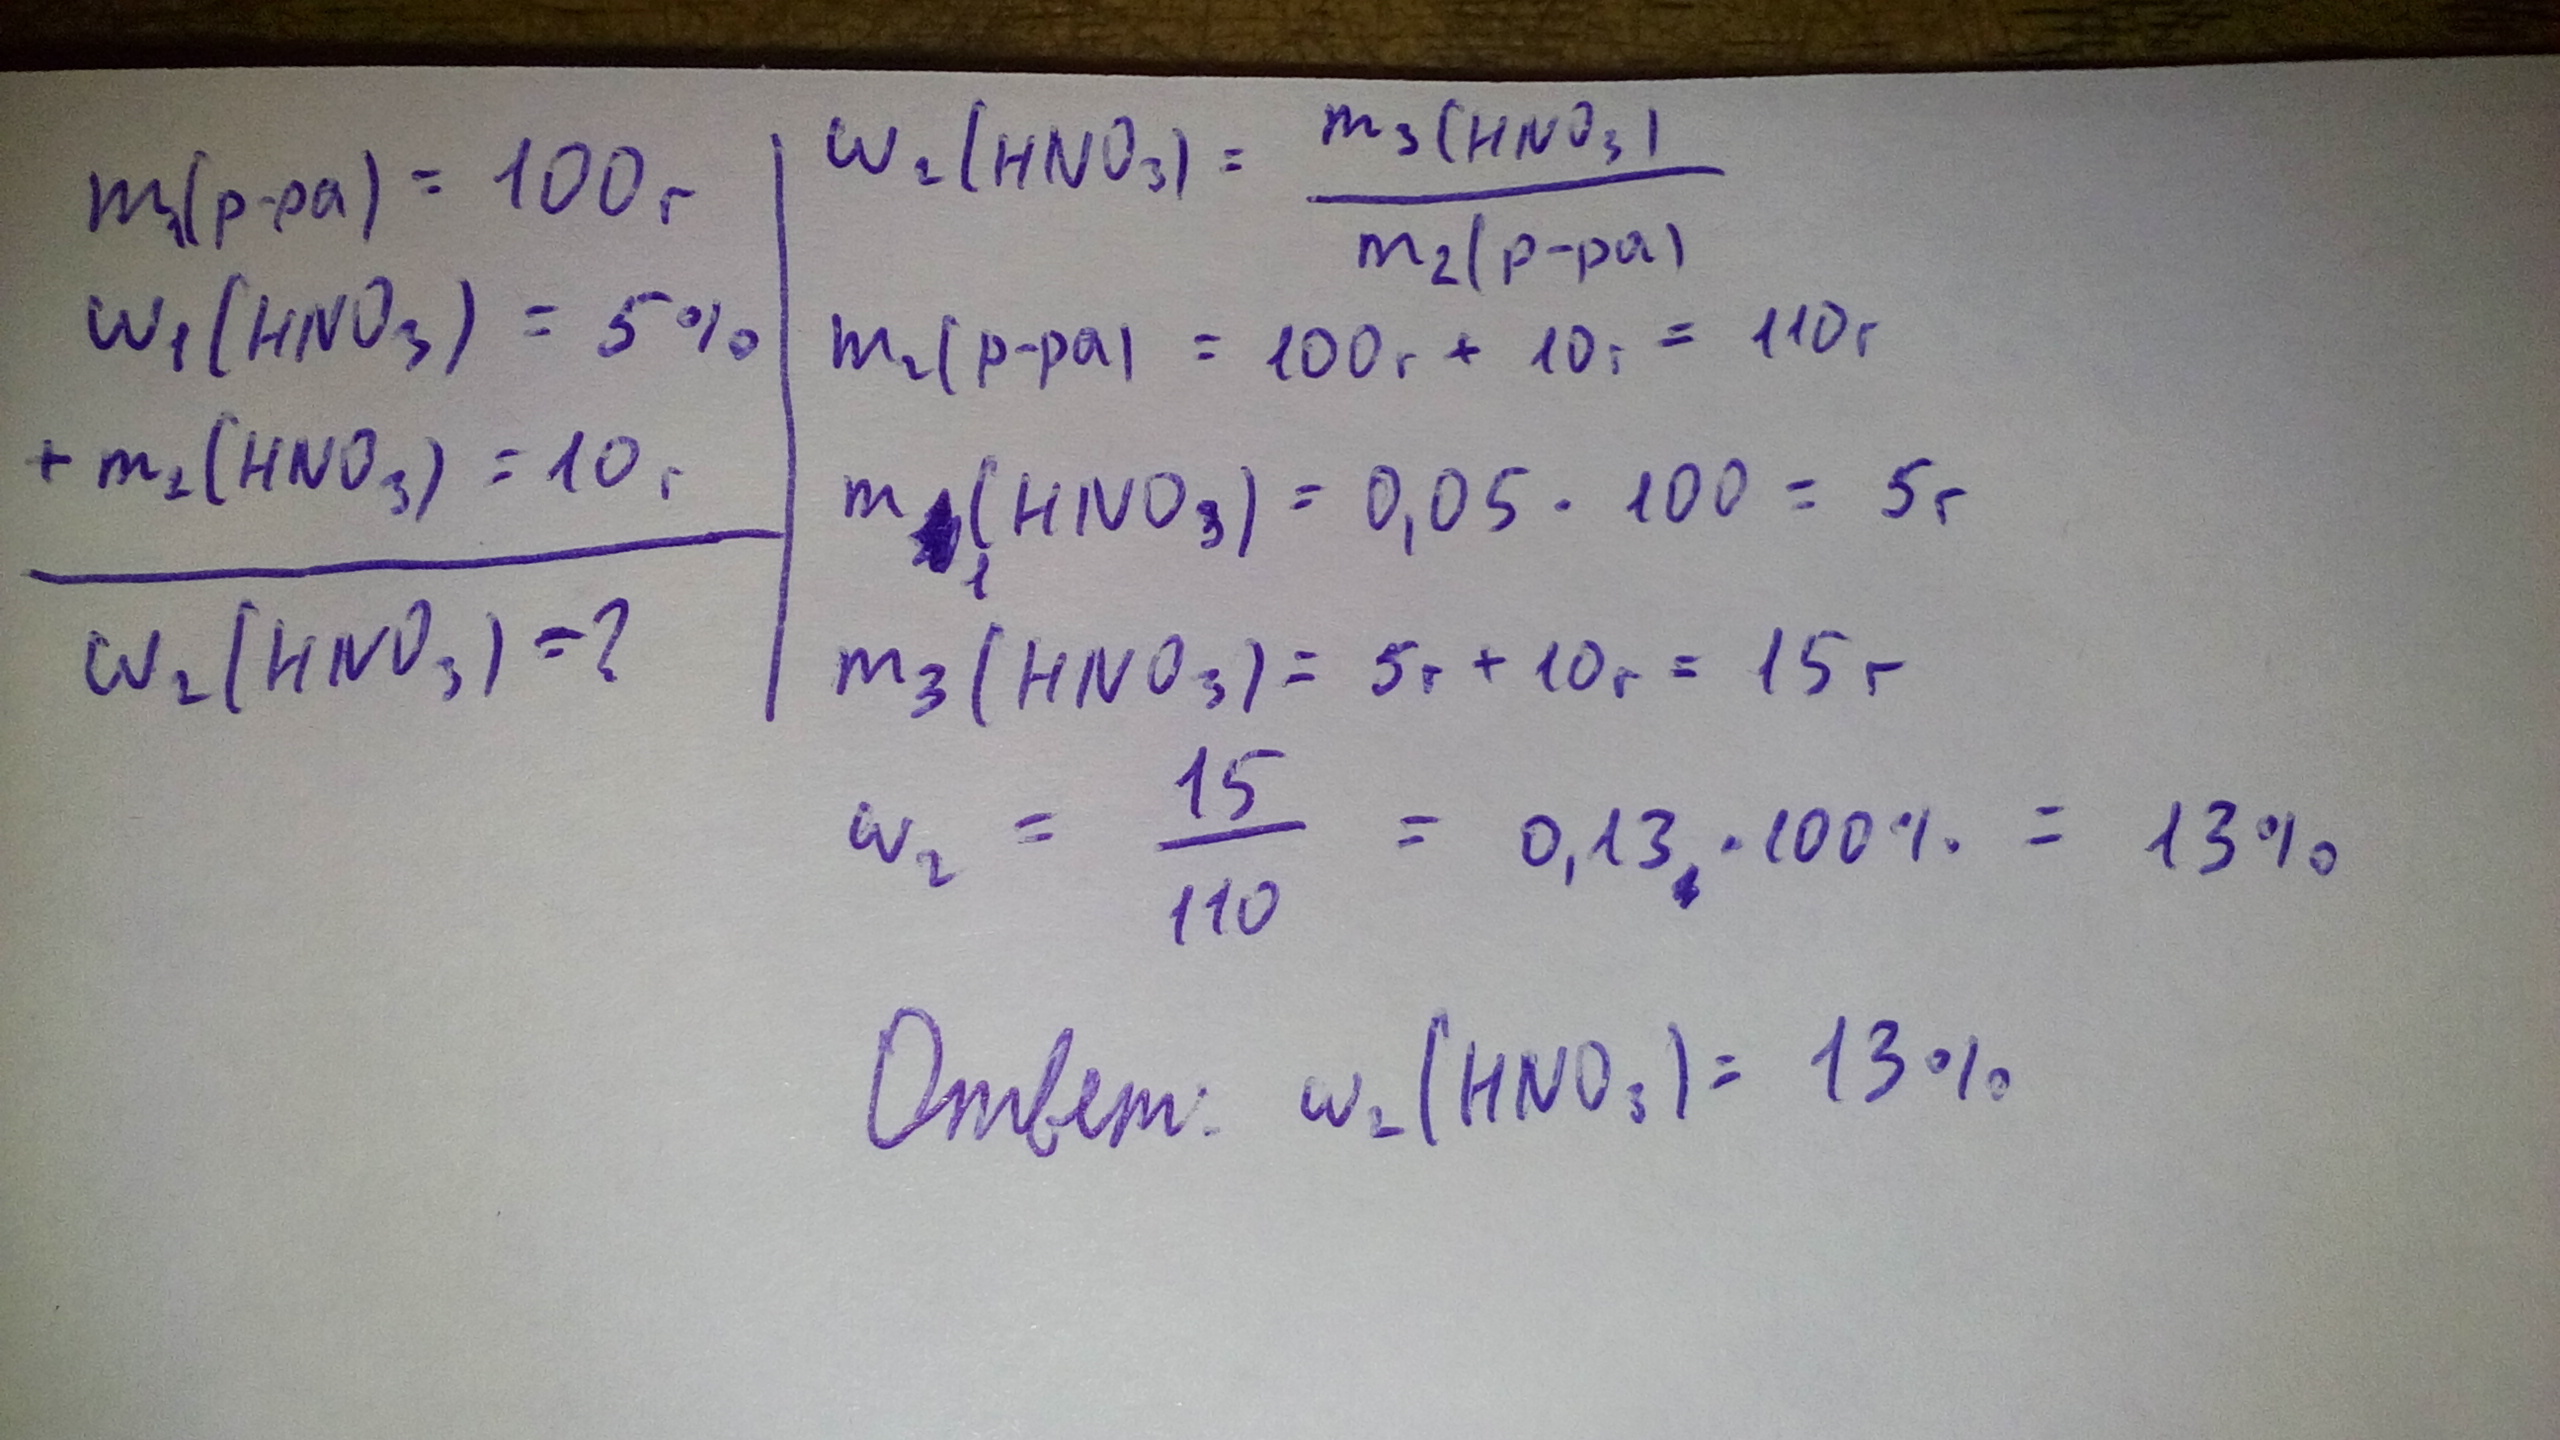 m₁(р-ра) = 100г
w₁(HNO₃) = 5%
+ m₂(HNO₃) = 10г
w₂(HNO₃) = ?
w₂(HNO₃) = m₃(HNO₃) / m₂(р-ра)
m₂(р-ра) = 100г + 10г = 110г
m₁(HNO₃) = 0,05 · 100 = 5г
m₃(HNO₃) = 5г + 10г = 15г
w₂ = 15 / 110 = 0,13 · 100% = 13%
Ответ: w₂(HNO₃) = 13%